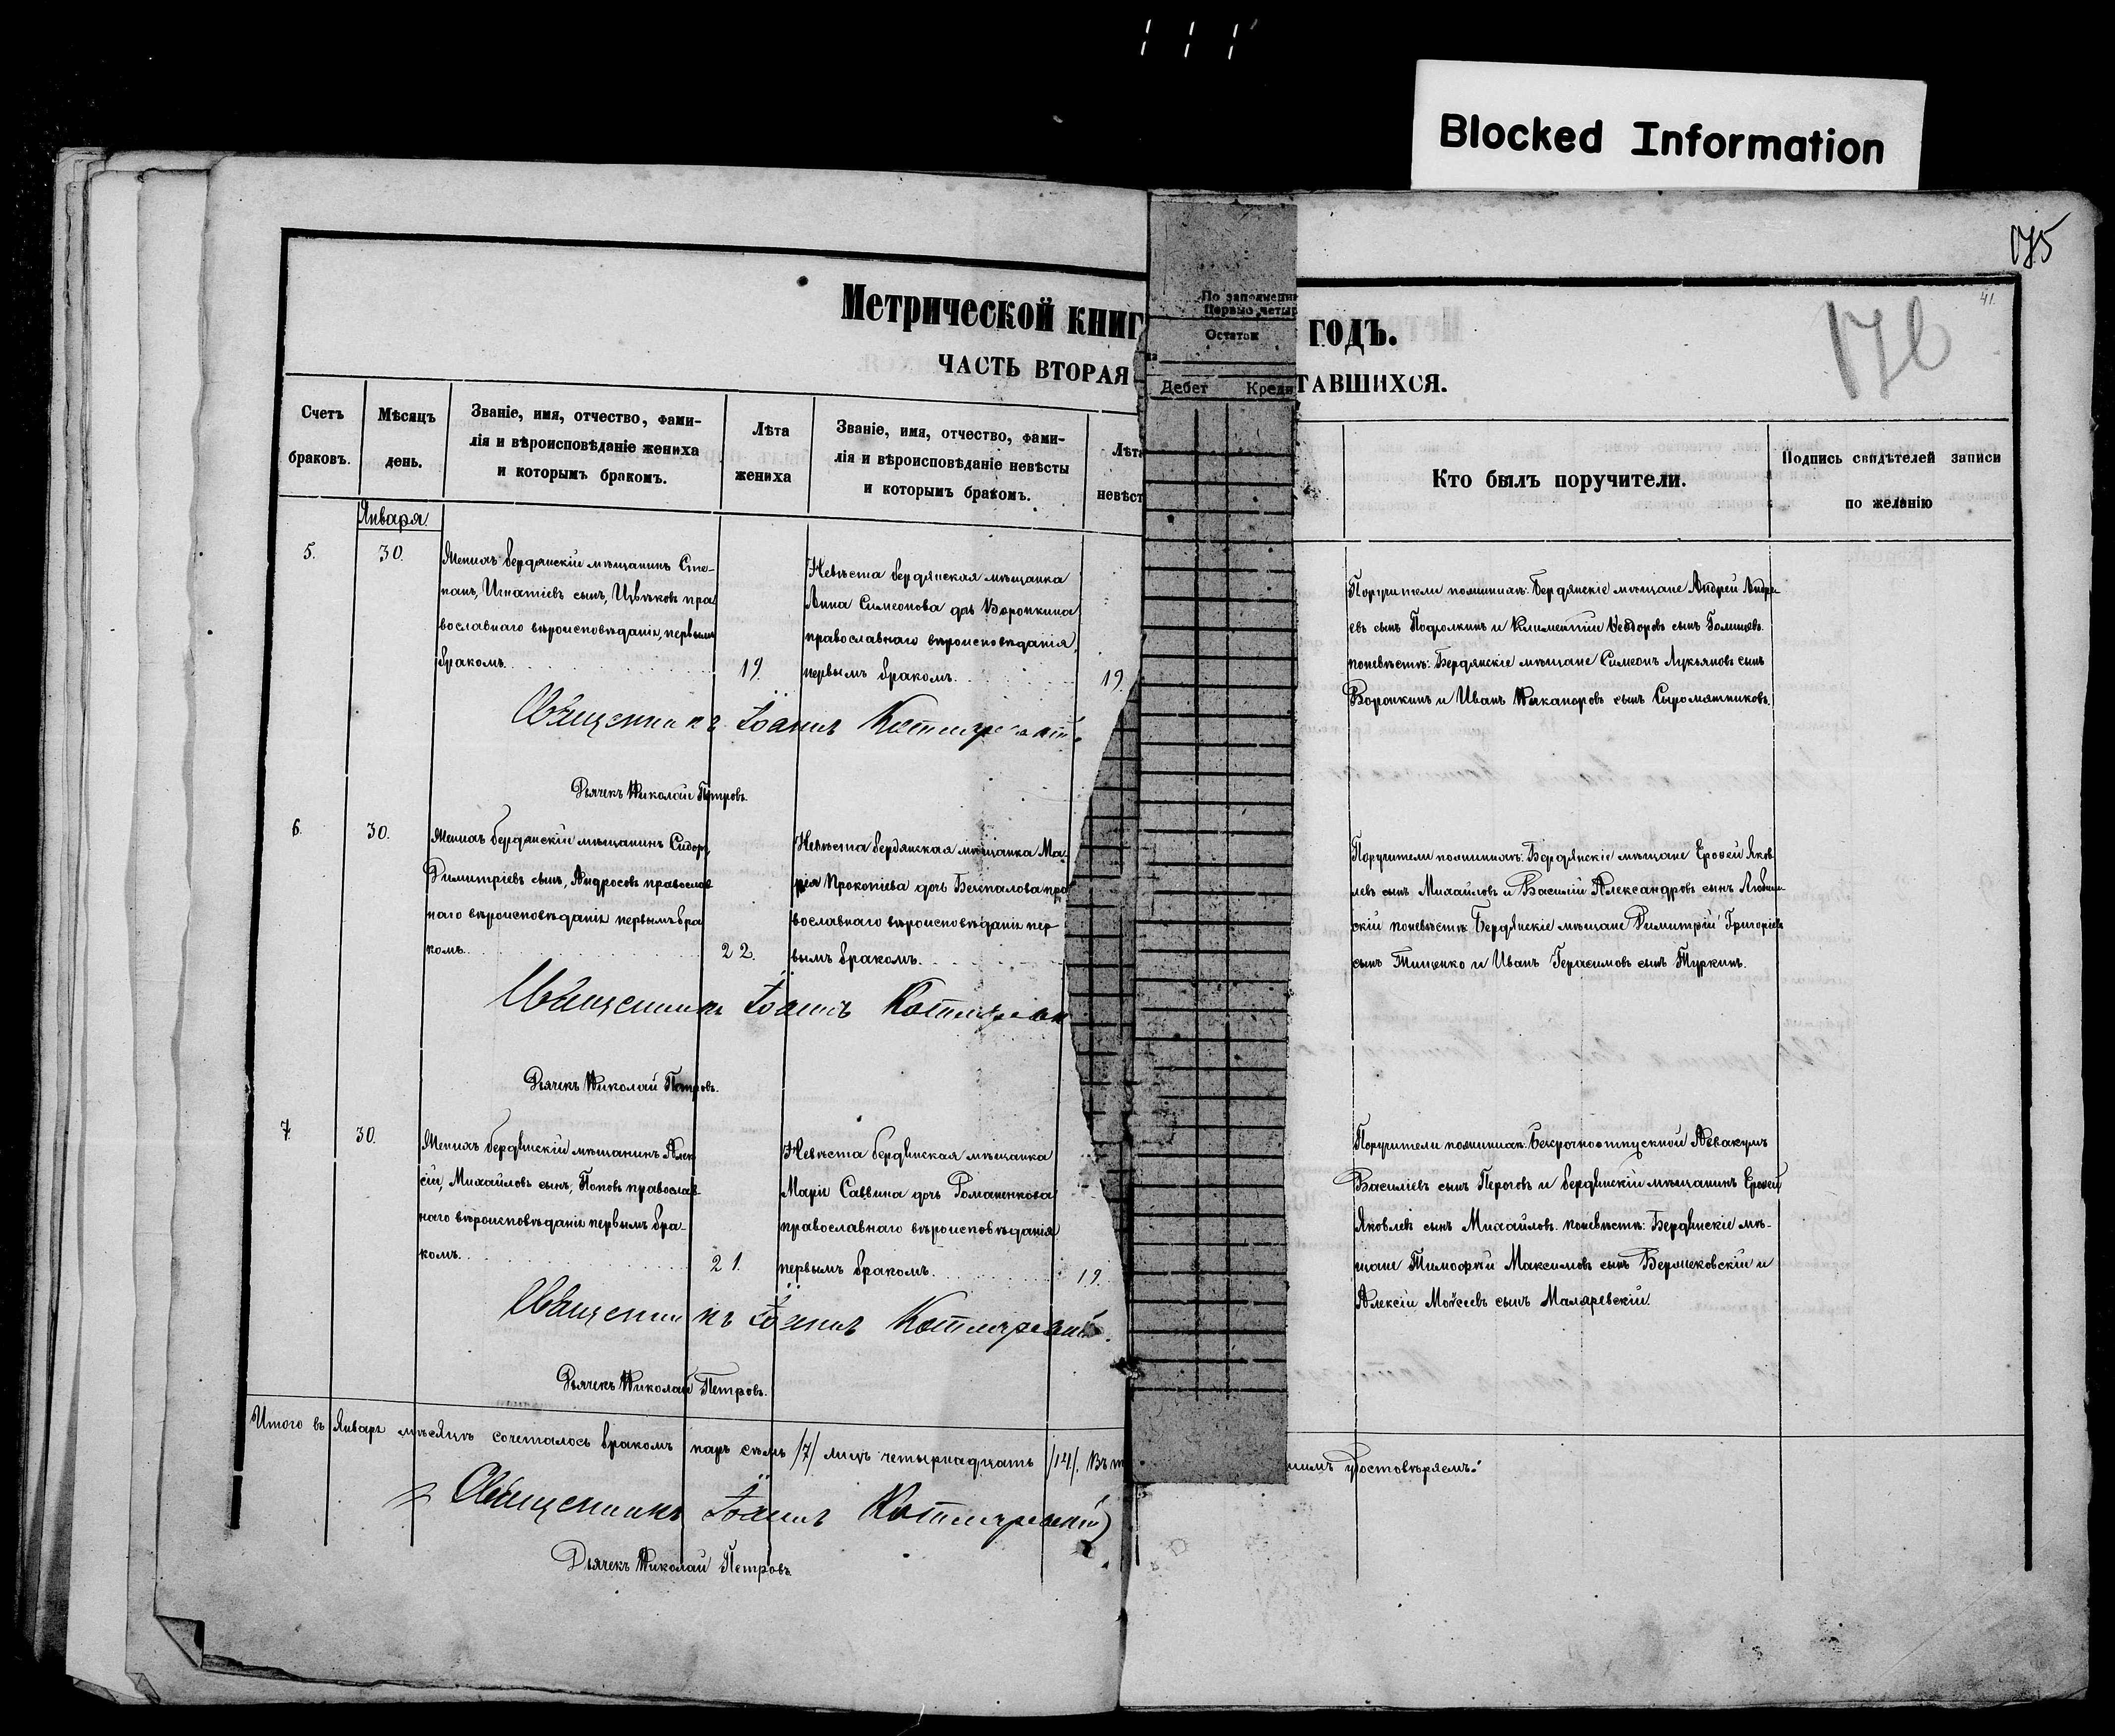 Blocked Information
175
41.
176
Метрической книг
годъ.
По заполнени
Первые четыр
Остаток
ЧАСТЬ ВТОРАЯ
ТАВШИХСЯ.
на
Дебет Креди
Счетъ браковъ.
Мѣсяцъ день.
Званіе, имя, отчество, фами-
лія и вѣроисповѣданіе жениха
и которымъ бракомъ.
Лѣта
жениха
Званіе, имя, отчество, фами-
лія и вѣроисповѣданіе невѣсты
и которымъ бракомъ.
Лѣта
невѣст
Кто былъ поручители.
Подпись свидѣтелей записи
по желанію
Января
5.
30.
Женихъ бердянскій мѣщанинъ Сте-
панъ, Игнатіевъ сынъ, Цвѣковъ пра
вославнаго вѣроисповѣданія, первымъ
бракомъ.
19.
Невѣста бердянская мѣщанка
Анна Симеонова дочь Воронкина
православнаго вѣроисповѣданія,
первымъ бракомъ.
19.
Поручители поженихѣ: Бердянскіе мѣщане Андрей Андре
евъ сынъ и Климентій Ѳеодоровъ сынъ
поневѣстѣ: Бердянскіе мѣщане Симеонъ Лукьяновъ сынъ
Воронкинъ и Иванъ Никаноровъ сынъ Сыромятниковъ.
Священникъ Іоаннъ Котляревскій
Дьячекъ Николай Петровъ.
6.
30.
Женихъ бердянскій мѣщанинъ Сидоръ
Димитріевъ сынъ, Андросовъ православ
наго вѣроисповѣданія первымъ бра
комъ.
22.
Невѣста бердянская мѣщанка Ма-
рія Прокопіева дочь Безпалова пра
вославнаго вѣроисповѣданія пер
вымъ бракомъ.
Поручители поженихѣ: Бердянскіе мѣщане Ероѳей Яков
левъ сынъ Михайловъ и Василій Александровъ сынъ
скій поневѣстѣ Бердянскіе мѣщане Димитрій Григоріевъ
сынъ Тищенко и Иванъ Герасимовъ сынъ Туркинъ.
Священникъ Іоаннъ Котляревск
Дьячекъ Николай Петровъ.
7.
30.
Женихъ бердянскій мѣщанинъ Алек
сій, Михайловъ сынъ, Поповъ православ-
наго вѣроисповѣданія первымъ бра-
комъ.
21.
Невѣста бердянская мѣщанка
Марія Саввина дочь Романенкова
православнаго вѣроисповѣданія
первымъ бракомъ.
19.
Поручители поженихѣ: Безсрочноотпускной Аввакумъ
Василіевъ сынъ Пероговъ и бердянскій мѣщанинъ Ероѳей
Яковлевъ сынъ Михайловъ. поневѣстѣ: Бердянскіе мѣ-
щане Тимофѣй Максимовъ сынъ и
Алексій Моѵсеевъ сынъ Маляревскій.
Священникъ Іоаннъ Котляревскій.
Дьячекъ Николай Петровъ.
Итого въ Январѣ мѣсяцѣ сочеталось бракомъ паръ семь /7/ лицъ четырнадцать /14/. Въ
удостовѣряемъ:
Священникъ Іоаннъ Котляревскій
Дьячекъ Николай Петровъ.